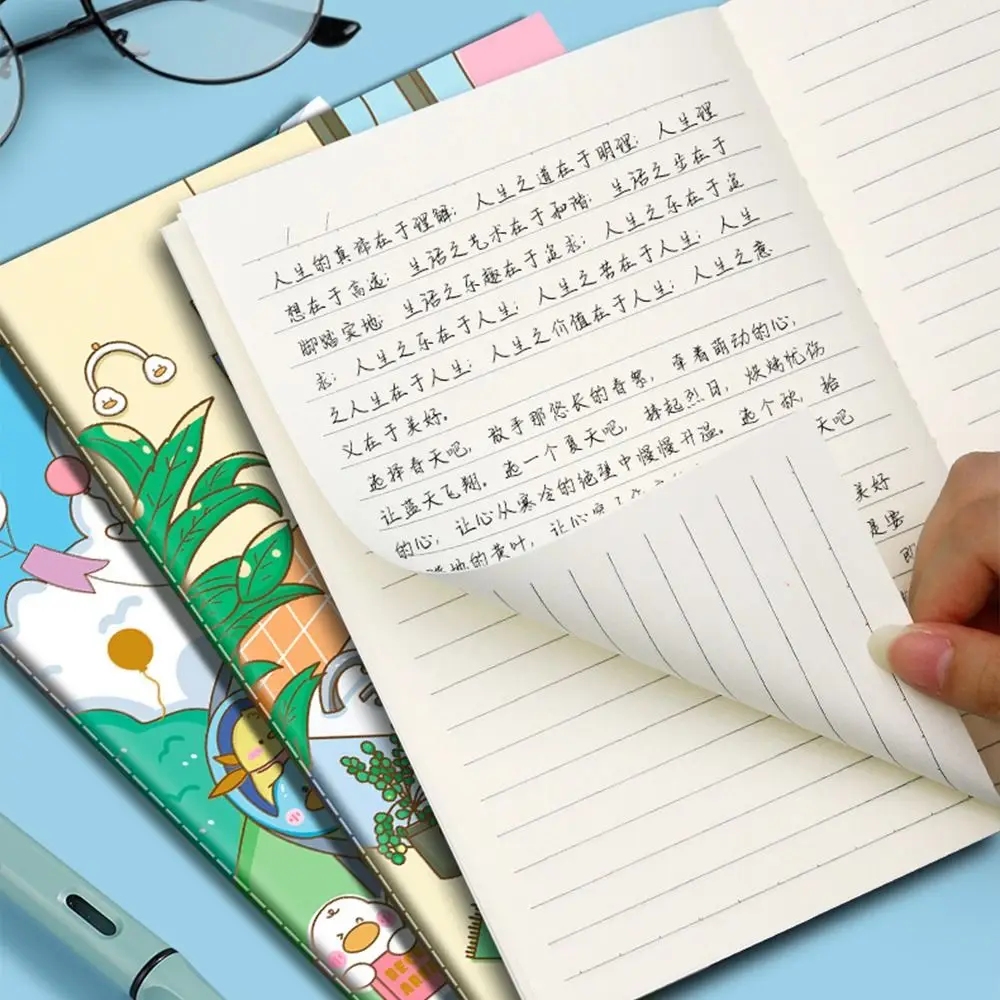 人生的真谛在于理解；人生之道在于明理；人生理
想在于高远；生活之艺术在于和谐；生活之步在于
脚踏实地；生活之乐趣在于追求；人生之乐在于追
求；人生之乐在于人生；人生之苦在于人生；人生
之人生在于人生；人生之价值在于人生；人生之意
义在于美好。
选择春天吧，那悠长的春，牵着萌动的心，
让蓝天飞翔。选一个夏天吧，捧起烈日，烘烤忧伤
的心，让心从寒冷的绝望中慢慢升温。选个秋，拾
地的黄叶，让心
天吧
美好
是要